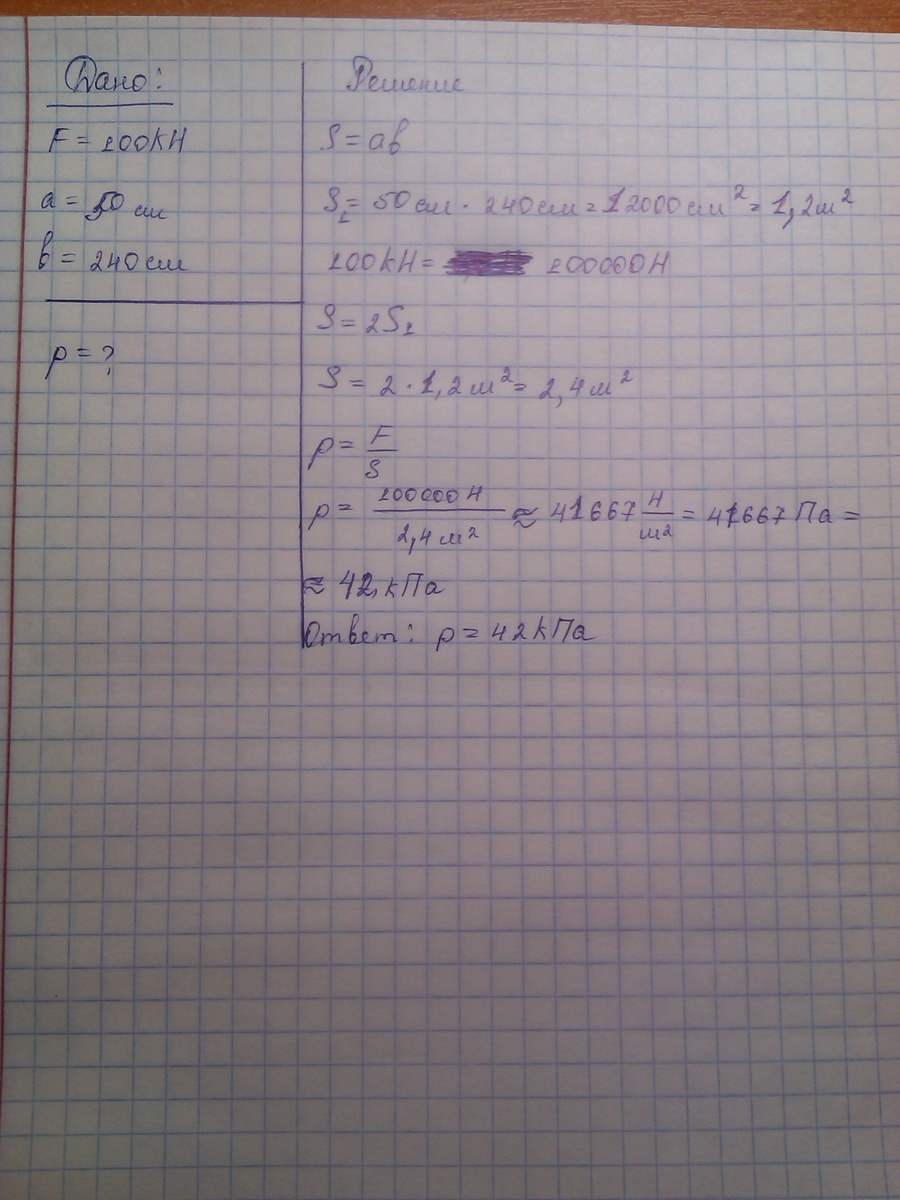 Дано:
F = 100кН
a = 50 см
в = 240 см
p = ?
Решение
S = ав
S₁ = 50 см · 240 см = 12000 см² = 1,2 м²
100кН = 100000Н
S = 2S₁
S = 2 · 1,2 м² = 2,4 м²
p = F/S
p = 100000 Н/2,4 м² ≈ 41667 Н/м² = 41667 Па =
≈ 42 кПа
Ответ: p = 42 кПа